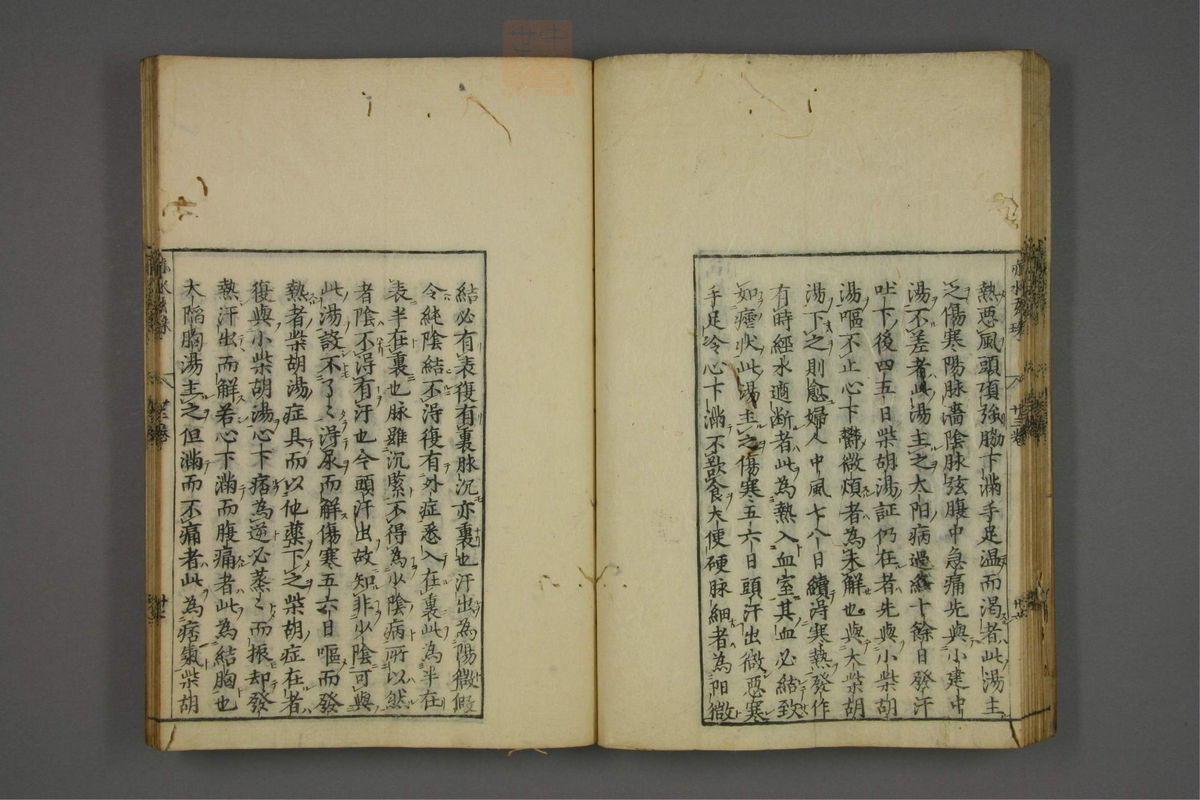 熱悪風頭項強脇下滿手足温而渇者此湯主
之傷寒陽脉濇陰脉弦腹中急痛先與小建中
湯不差者此湯主之太阳病過經十餘日發汗
吐下後四五日柴胡湯証仍在者先與小柴胡
湯嘔不止心下欝微煩者為未解也與大柴胡
湯下之則愈婦人中風七八日續淂寒熱發作
有時經水適断者此為熱入血室其血必結致
如瘧状此湯主之傷寒五六日頭汗出微悪寒
手足冷心下滿不欲食大便硬脉細者為阳微
結必有表復有裏脉沉亦裏也汗出為陽微假
令純陰結不得復有外症悉入在裏此為半在
表半在裏也脉雖沉緊不得為少陰病所以然
者陰不得有汗也今頭汗出故知非少陰可與
此湯設不了〻淂尿而解傷寒五六日嘔而發
熱者柴胡湯症具而以他藥下之柴胡症在者
復與小柴胡湯心下痞為逆必蒸〻而振却發
熱汗出而解若心下滿而腹痛者此為結胸也
大陷胸湯主之但滿而不痛者此為痞氣柴胡